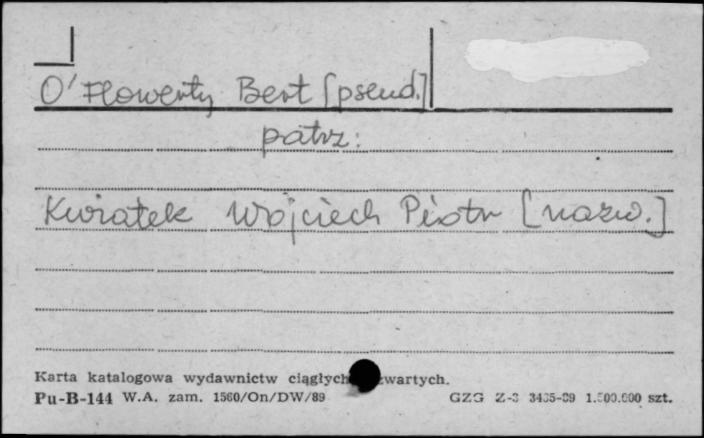 O'Flowerty Bert [pseud.]
patrz:
Kwiatek Wojciech Piotr [nazw.]
Karta katalogowa wydawnictw ciągłych zwartych.
Pu-B-144 W.A. zam. 1560/On/DW/89 GZG Z-3 3435-89 1.500.000 szt.